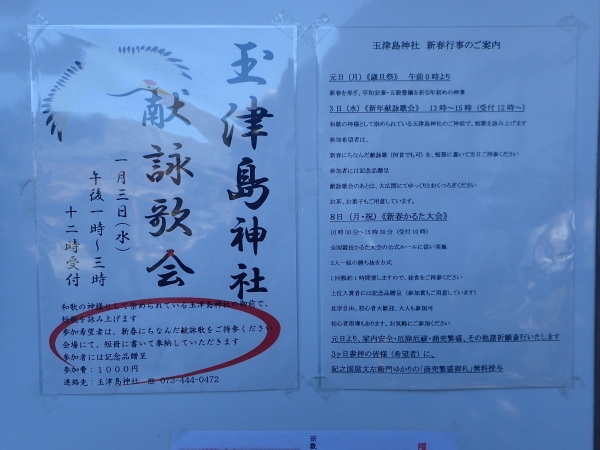 玉津島神社
献詠歌会
一月三日(水)
午後一時～三時
十二時受付
和歌の神様として崇められている玉津島神社の御前で、
短歌を詠み上げます
参加希望者は、新春にちなんだ献詠歌をご持参ください
会場にて、短冊に書いて奉納していただきます
参加者には記念品贈呈
参加費：1000円
連絡先：玉津島神社 ☎ 073-444-0472
玉津島神社 新春行事のご案内
元日(月)《歳旦祭》 午前0時より
新春を寿ぎ、平和安泰・五穀豊穣を祈る年初めの神事
3日(水)《新年献詠歌会》 13時～15時(受付12時～)
和歌の神様として崇められている玉津島神社のご神前で、短歌を詠み上げます
参加希望者は、
新春にちなんだ献詠歌(何首でも可)を、短冊に書いて当日ご持参ください
参加者には記念品贈呈
献詠歌会のあとは、大広間にてゆっくりとおくつろぎください
お茶、お菓子もご用意しています。
8日(月・祝)《新春かるた大会》
10時30分～15時30分(受付10時)
全国競技かるた大会の公式ルールに従い実施
2人一組の勝ち抜き方式
1回戦約1時間要しますので、昼食をご持参ください
上位入賞者には記念品贈呈(参加賞もご用意しています)
見学自由、初心者大歓迎、大人も参加可
初心者指導もあります。お気軽にご参加ください
元日より、家内安全・厄除厄祓・商売繁盛、その他諸祈願斎行いたします
3ヶ日参拝の皆様(希望者)に、
紀之国屋文左衛門ゆかりの「商売繁盛御札」無料授与
※数